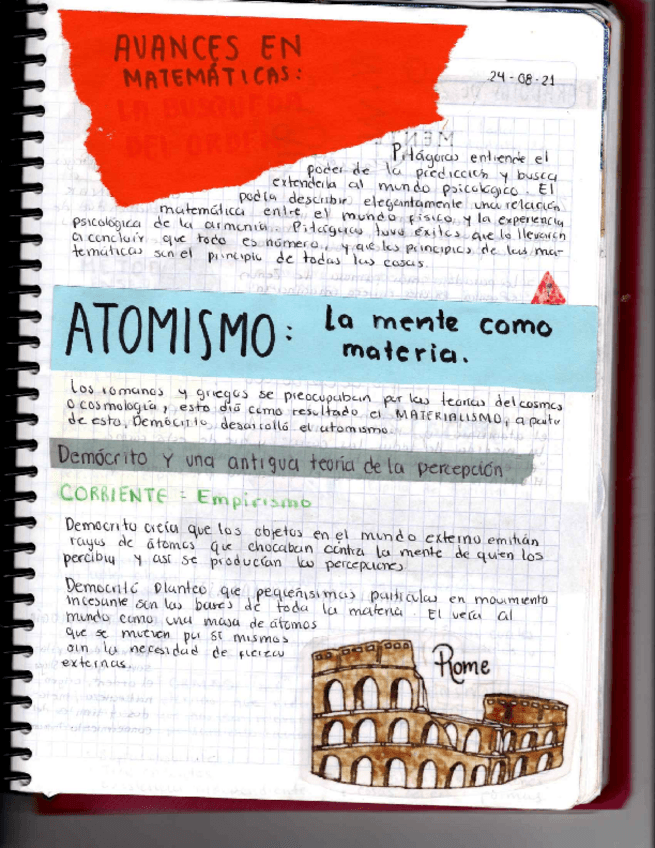 AVANCES EN
MATEMÁTICAS:
LA BUSQUEDA
DEL ORDEN
24-08-21
Pitágoras entiende el
poder de la predicción y busca
extenderla al mundo psicologico. El
podía describir elegantemente una relación
matemática entre el mundo físico y la experiencia
psicológica de la armonía. Pitágoras tuvo éxitos que lo llevaron
a concluir que todo es número, y que los principios de las ma-
temáticas son el principio de todas las cosas.
ATOMISMO: La mente como
materia.
Los romanos y griegos se preocupaban por las teorías del cosmos
o cosmología, esto dió como resultado el MATERIALISMO, a partir
de esto, Demócrito desarrolló el atomismo.
Demócrito y una antigua teoría de la percepción
CORRIENTE = Empirismo
Democrito creía que los objetos en el mundo externo emitían
rayos de átomos que chocaban contra la mente de quien los
percibía y así se producían las percepciones
Democrito planteo que pequeñisimas particulas en movimiento
incesante son las bases de toda la materia. El veía al
mundo como una masa de átomos
que se mueven por sí mismos
sin la necesidad de fuerzas
externas.
Rome